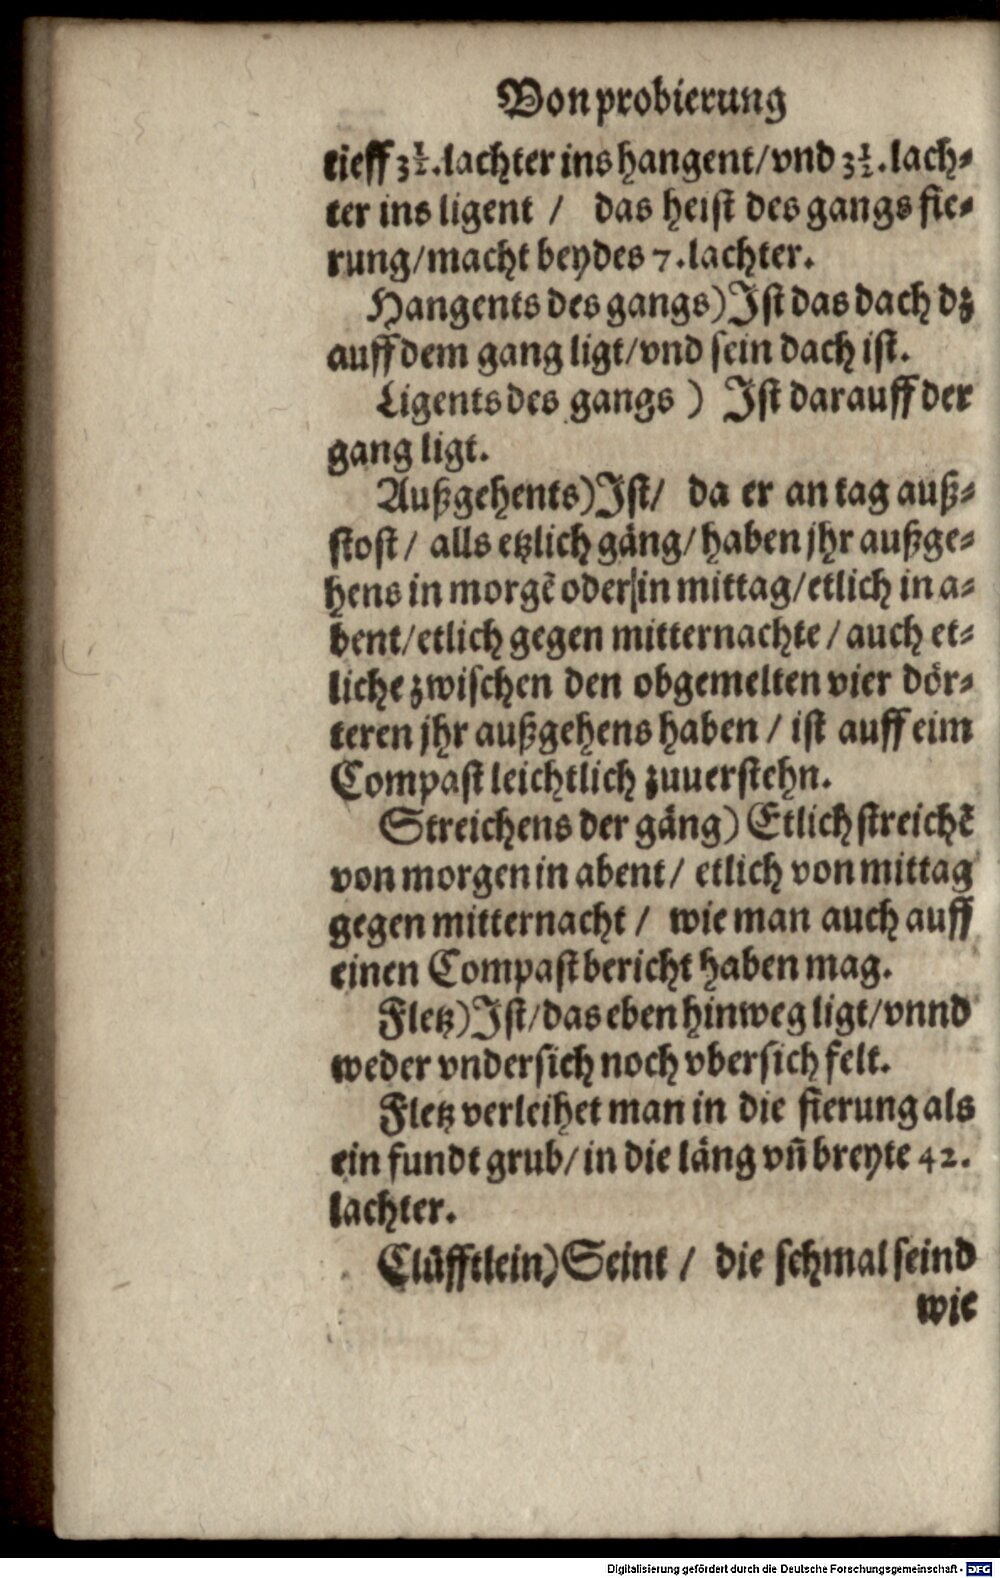 Von probierung
tieff 3½. lachter ins hangent/ vnd 3½. lach⸗
ter ins ligent / das heist des gangs fie⸗
rung/ macht beydes 7. lachter.
Hangents des gangs) Ist das dach dz
auff dem gang ligt/ vnd sein dach ist.
Ligents des gangs ) Ist darauff der
gang ligt.
Außgehents) Ist/ da er an tag auß⸗
stost / alls etzlich gäng/ haben jhr außge⸗
hens in morgẽ oder in mittag/ etlich in a⸗
bent/ etlich gegen mitternachte / auch et⸗
liche zwischen den obgemelten vier dör⸗
teren jhr außgehens haben / ist auff eim
Compast leichtlich zuuerstehn.
Streichens der gäng) Etlich streichẽ
von morgen in abent/ etlich von mittag
gegen mitternacht / wie man auch auff
einen Compast bericht haben mag.
Fletz) Ist/ das eben hinweg ligt/ vnnd
weder vndersich noch vbersich felt.
Fletz verleihet man in die fierung als
ein fundt grub/ in die läng vñ breyte 42.
lachter.
Clüfftlein) Seint / die schmal seind
wie
Digitalisierung gefördert durch die Deutsche Forschungsgemeinschaft - DFG